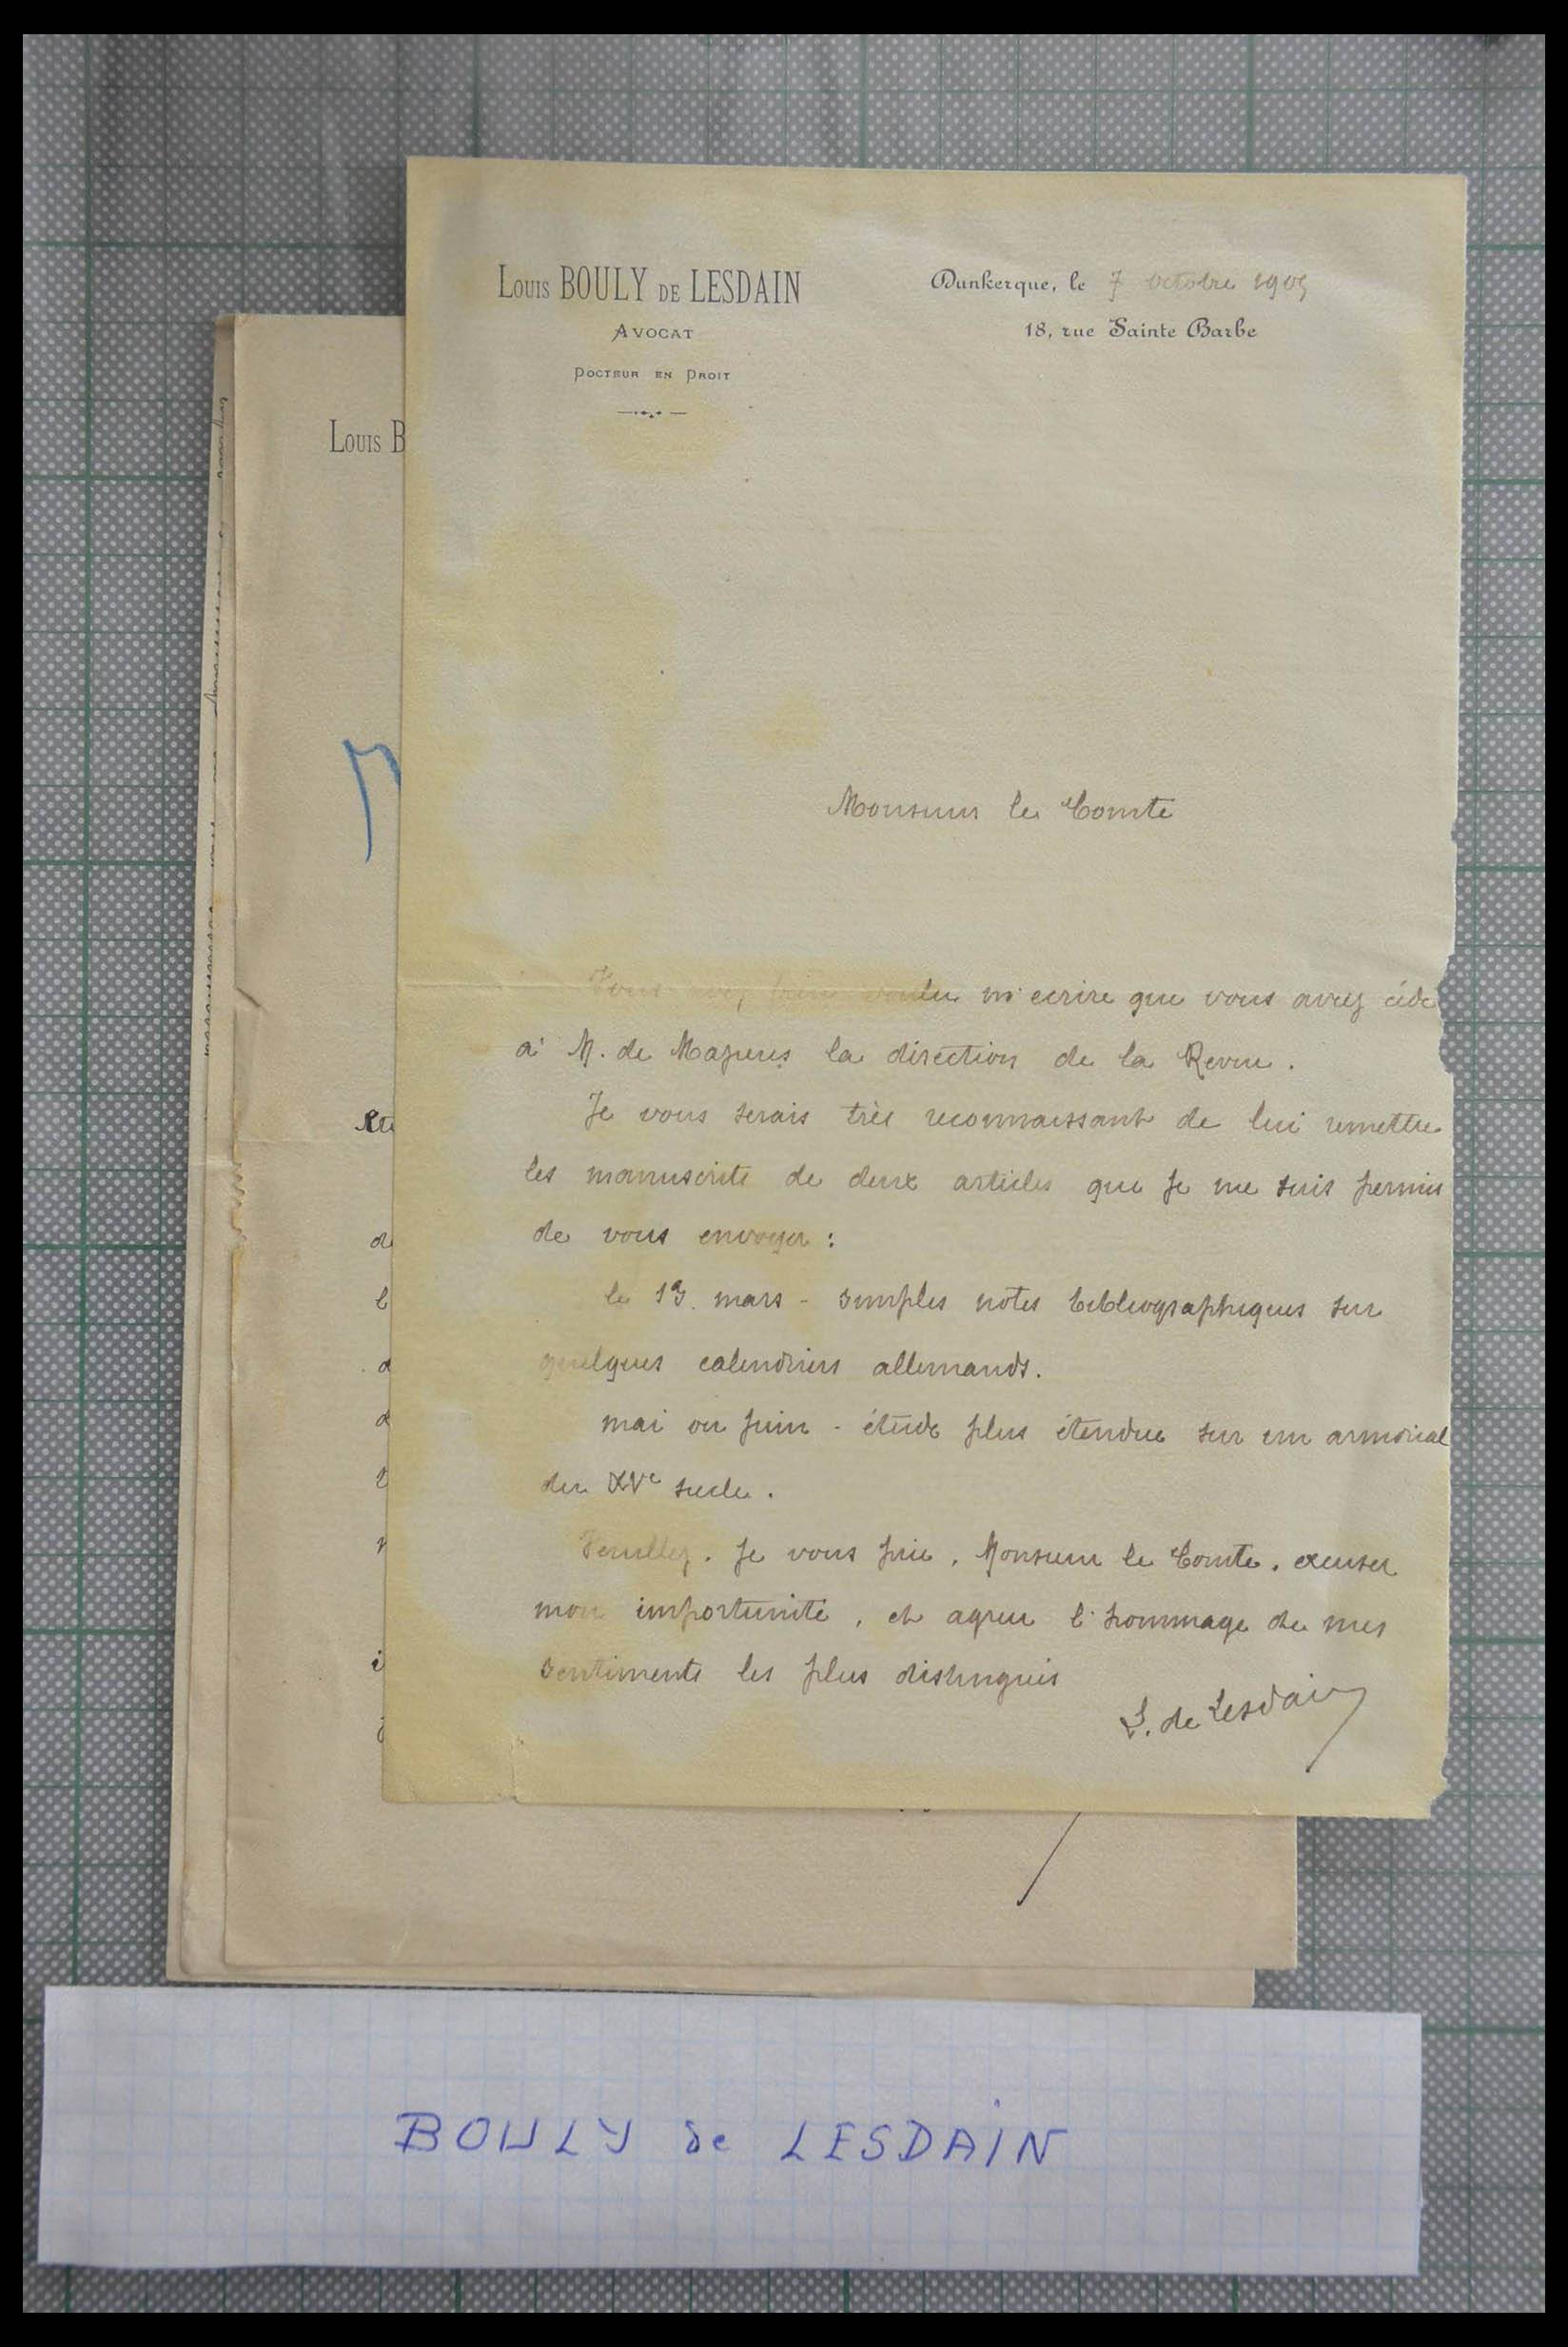 Louis BOULY DE LESDAIN
AVOCAT
DOCTEUR EN DROIT
Dunkerque, le 7 octobre 1905
18, rue Sainte Barbe
Louis B
Monsieur le Comte
Vous avez bien voulu m'ecrire que vous avez cédé
à M. de la direction de la Revue.
Je vous serais très reconnaissant de lui remettre
les manuscrits de deux articles que je me suis permis
de vous envoyer :
le mars - simples notes bibliographiques sur
quelques calendriers allemands.
mai ou juin - étude plus étendue sur un armorial
du XVe siecle.
Veuillez, je vous prie, Monsieur le Comte, excuser
mon importunité, et agreer l'hommage de mes
sentiments les plus distingués
L. de Lesdain
BOULY de LESDAIN